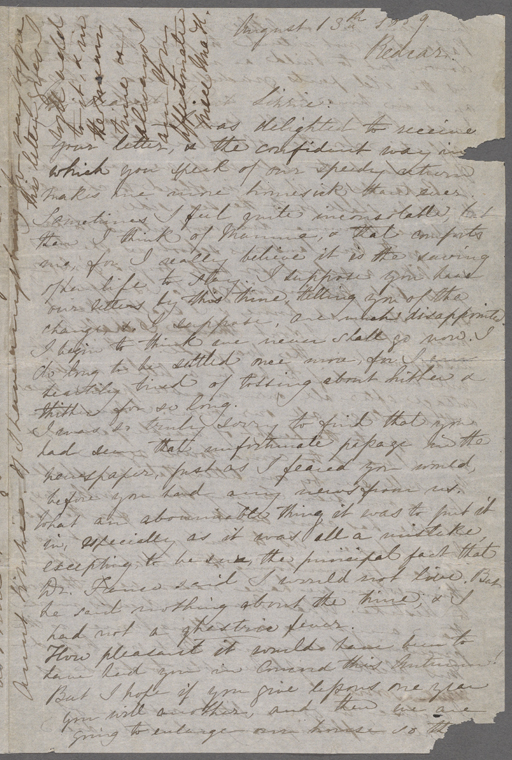 August 13th 1859
Redcar.
Dear Lizzie:
I was delighted to receive
your letter, & the confident way in
which you speak of our speedy return
makes me more homesick than ever
Sometimes I feel quite inconsolable, but
then I think of Mamma, & that comforts
me, for I really believe it is the saving
of her life to stay. I suppose you have
our letters by this time, telling you of the
change & I suppose, are much disappointed.
I begin to think we never shall go now. I
do long to be settled once more, for I am
heartily tired of tossing about hither &
thither for so long.
I was so truly sorry to find that you
had seen that unfortunate passage in the
newspaper, just as I feared you would,
before you had any news from us.
What an abominable thing it was to put it
in, especially as it was all a mistake,
excepting, to be sure, the principal fact that
Dr. Franco said I would not live. But
he said nothing about the time, & I
had not a ghastric fever.
How pleasant it would have been to
have had you in Concord this Autumn!
But I hope if you give lessons one year
you will another, and then we are
going to enlarge our house so that